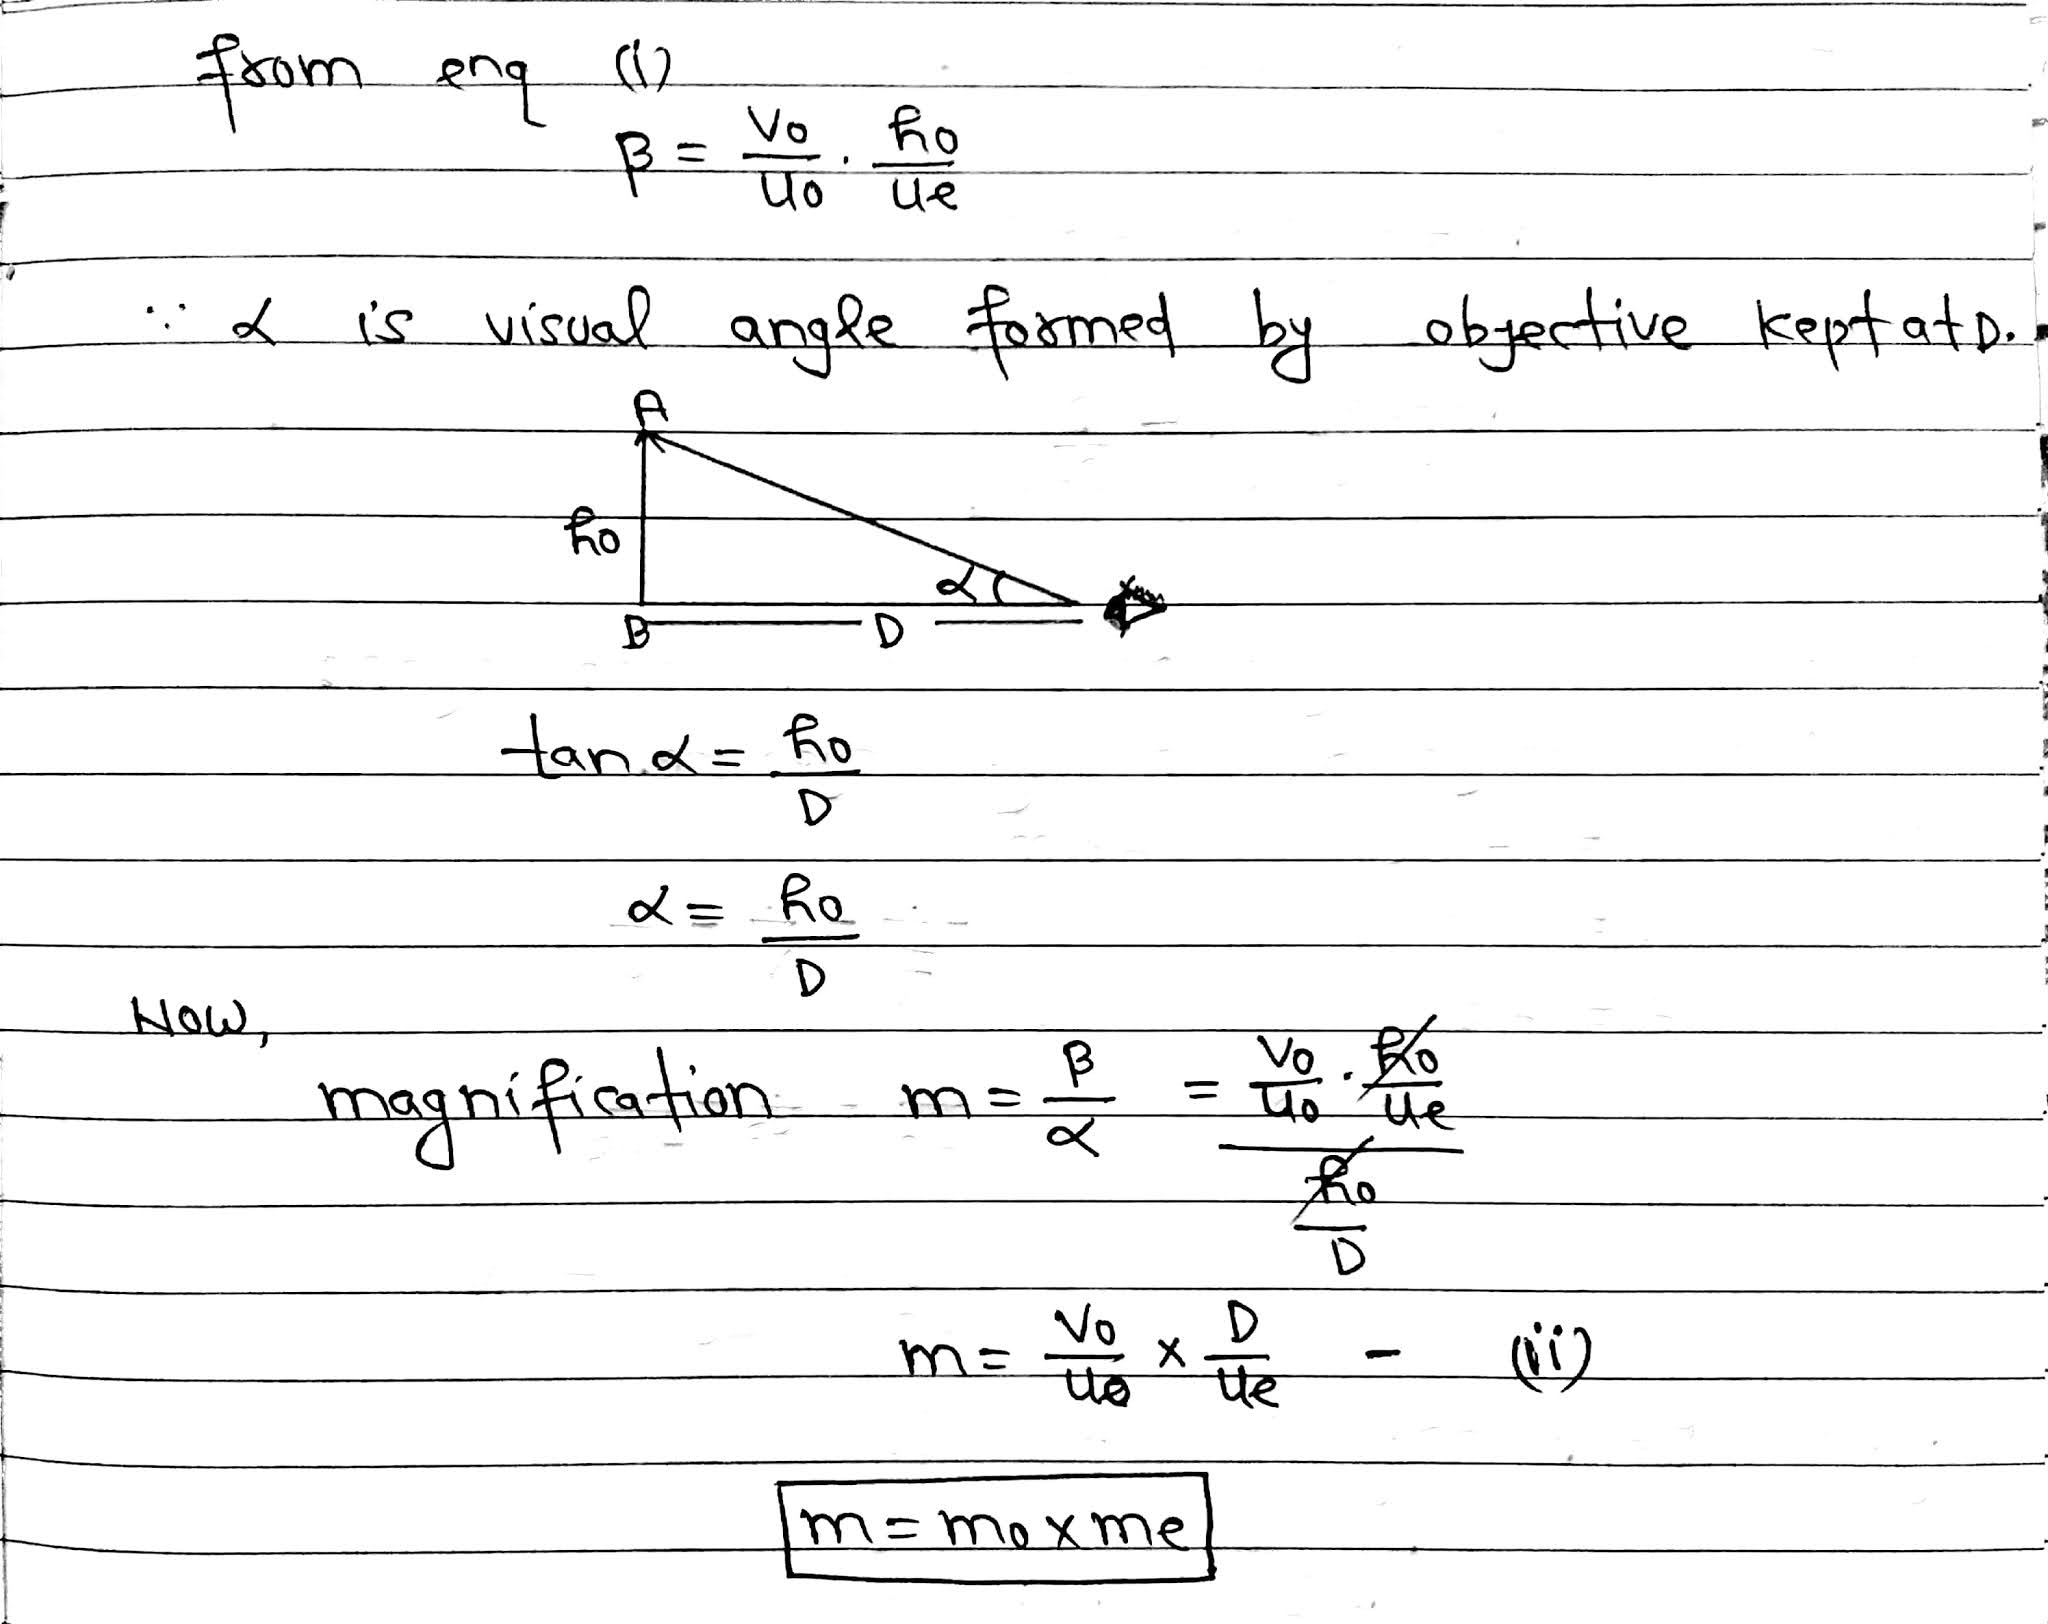 from enq (i)
β = Vo/uo . ho/ue
∵ α is visual angle formed by objective kept at D.
A
ho
α
B D
tan α = ho/D
α = ho/D
Now,
magnification m = β/α = (Vo/uo . ho/ue)/(ho/D)
m = Vo/uo × D/ue - (ii)
m = mo × me